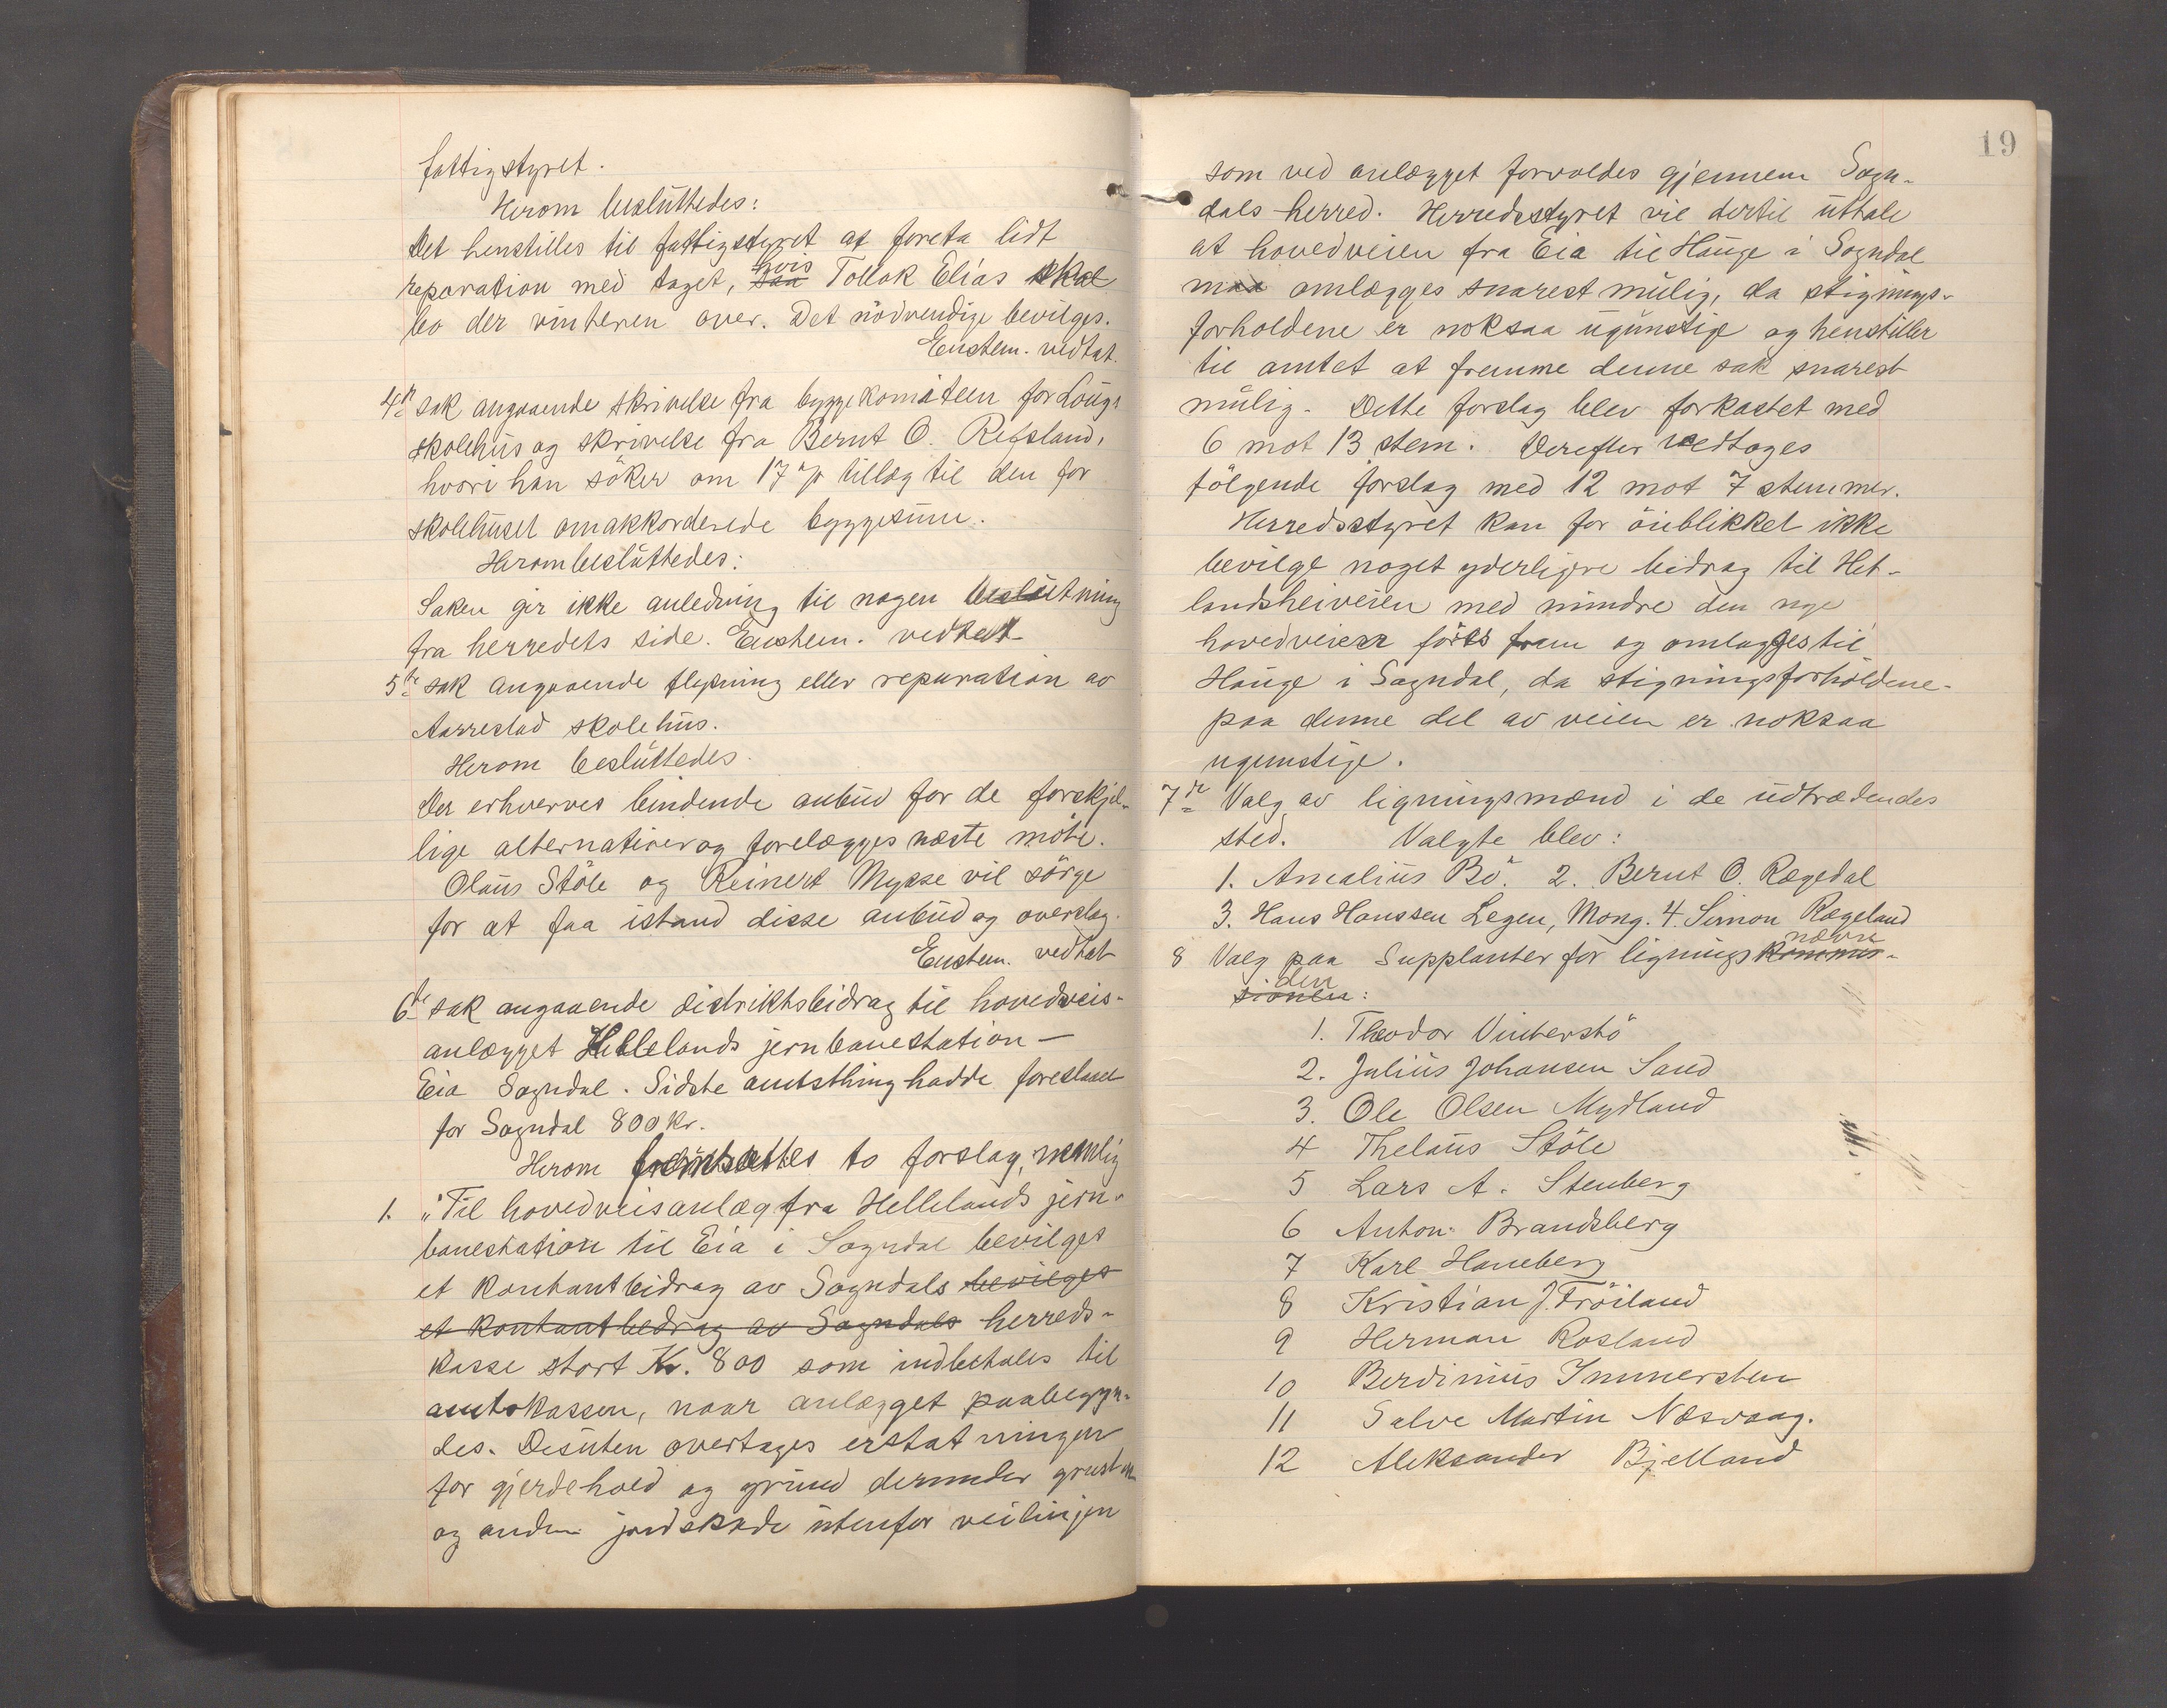 fattigstyret.
Herom besluttedes:
Det henstilles til fattigstyret at foreta lidt
reparation med taget, saa hvis Tollak Elias skal
bo der vinteren over. Det nödvendige bevilges.
Enstem. vedtat.
4de sak angaaende skrivelse fra byggekomiteen for
skolehus og skrivelse fra Bernt O. Refsland,
hvori han söker om 17 % tillæg til den for
skolehuset omakkorderede byggesum.
Herom besluttedes:
Saken gir ikke anledning til nogen beslutning
fra herredets side. Enstem. vedtat
5te sak angaaende flytning eller reparation av
Aarrestad skolehus.
Herom besluttedes.
Der erhverves bindende anbud for de forskjel-
lige alternativer og forelægges næste möte.
Olaus Stöle og Reinert Mysse vil sörge
for at faa istand disse anbud og overslag.
Enstem. vedtat
6te sak angaaende distriktsbidrag til hovedveis-
anlægget Hellelands jernbanestation —
Eia Sogndal. Sidste amtsthing hadde foreslaaet
for Sogndal 800 kr.
Herom fremsattes to forslag, nemlig
1. "Til hovedveisanlæg fra Hellelands jern-
banestation til Eia i Sogndal bevilges
et kontantbidrag av Sogndals bevilges
et kontantbedrag av Sogndals herreds-
kasse stort Kr. 800 som indbetales til
amtskassen, naar anlægget paabegyn-
des. Desuten overtages erstatningen
for gjerdehold og grund derunder
og anden jordskade utenfor veilinjen
19
som ved anlægget forvoldes gjennem Sogn-
dals herred. Herredsstyret vil dertil uttale
at hovedveien fra Eia til Hauge i Sogndal
maa omlægges snarest mulig, da stignings-
forholdene er noksaa ugunstige og henstiller
til amtet at fremme denne sak snarest
mulig. Dette forslag blev forkastet med
6 mot 13 stem. Derefter vedtoges
fölgende forslag med 12 mot 7 stemmer.
Herredsstyret kan for öieblikket ikke
bevilge noget yderligere bidrag til Het-
landsheiveien med mindre den nye
hovedveien föres fram og omlægges til
Hauge i Sogndal, da stigningsforholdene
paa denne del av veien er noksaa
ugunstige.
7de Valg av ligningsmænd i de udtrædendes
sted. Valgte blev:
1. Amalius Bö. 2. Bernt O. Rægedal
3. Hans Hanssen Legen, Mong. 4. Simon Rægeland
8 Valg paa Supplanter for lignings kommis- nævn
sionen den:
1. Theodor Vinterstö
2. Julius Johansen Sand
3. Ole Olsen Mydland
4 Thelaus Stöle
5 Lars A. Stenberg
6 Anton Brandsberg
7 Karl Haneberg
8 Kristian J. Fröiland
9 Herman Rosland
10 Berdinius Immersten
11 Salve Martin Næsvaag.
12 Aleksander Bjelland